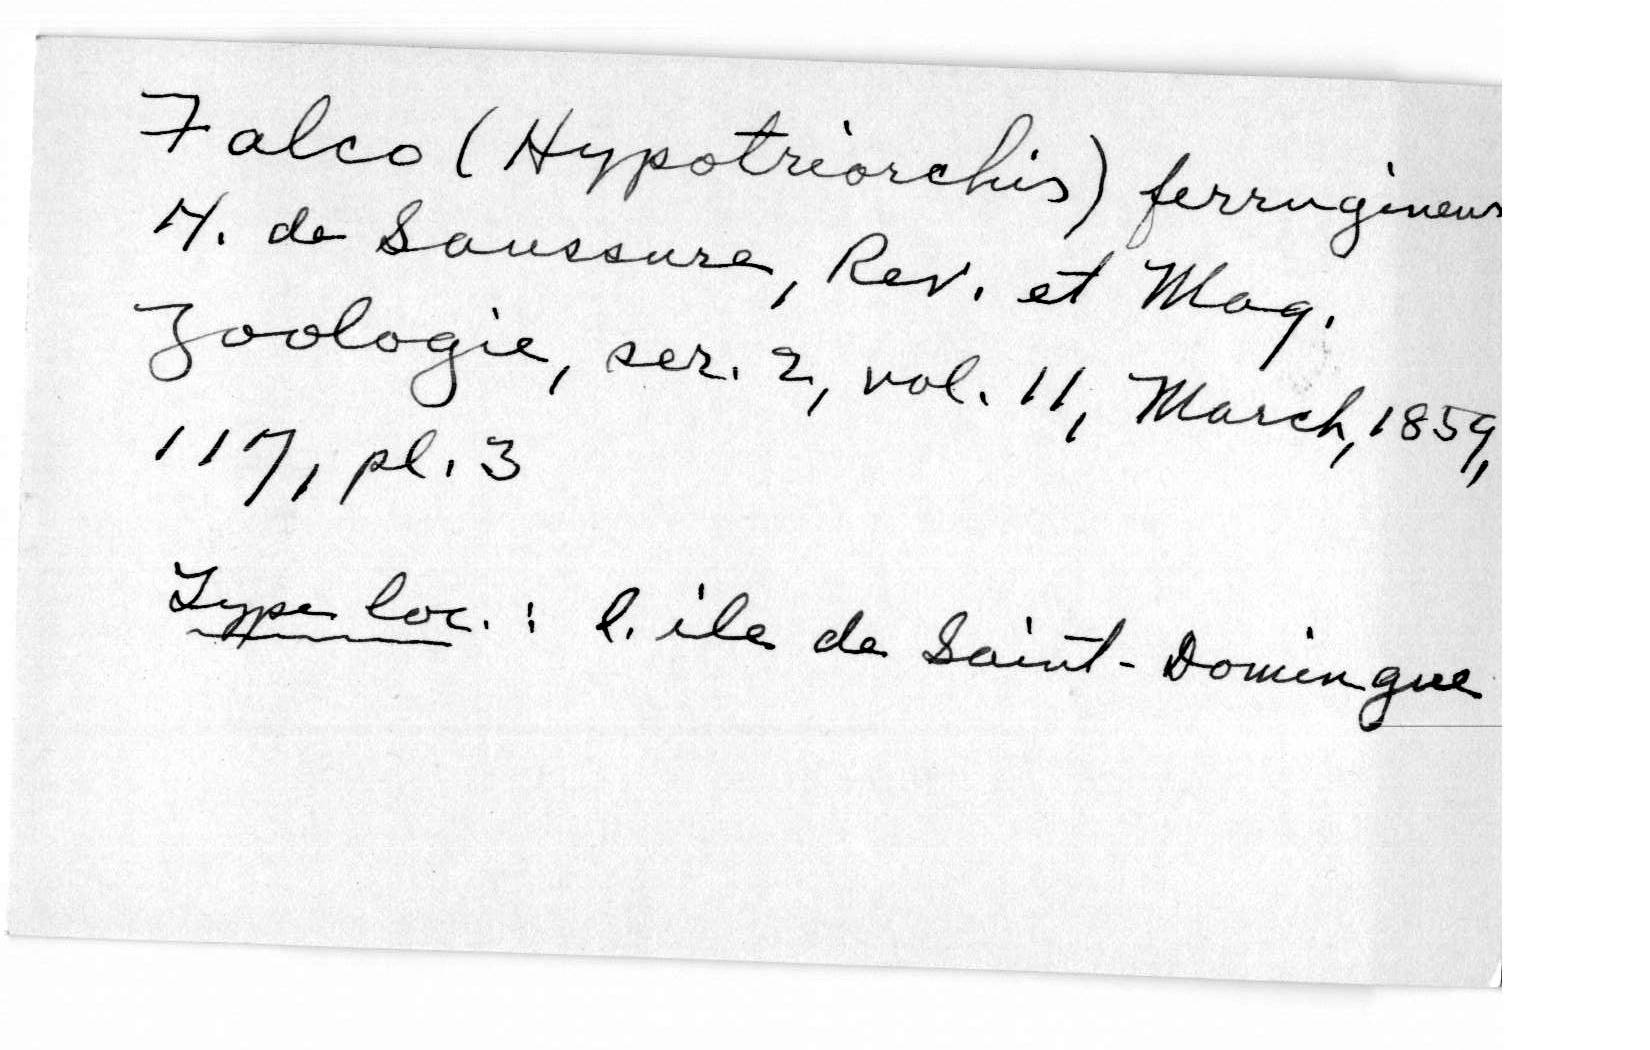 Falco (Hypotriorchis) ferrugineus
H. de Saussure, Rev. et Mag.
Zoologie, ser. 2, vol. 11, March, 1859,
117, pl. 3
Type loc. : l. ile de Saint-Domingue